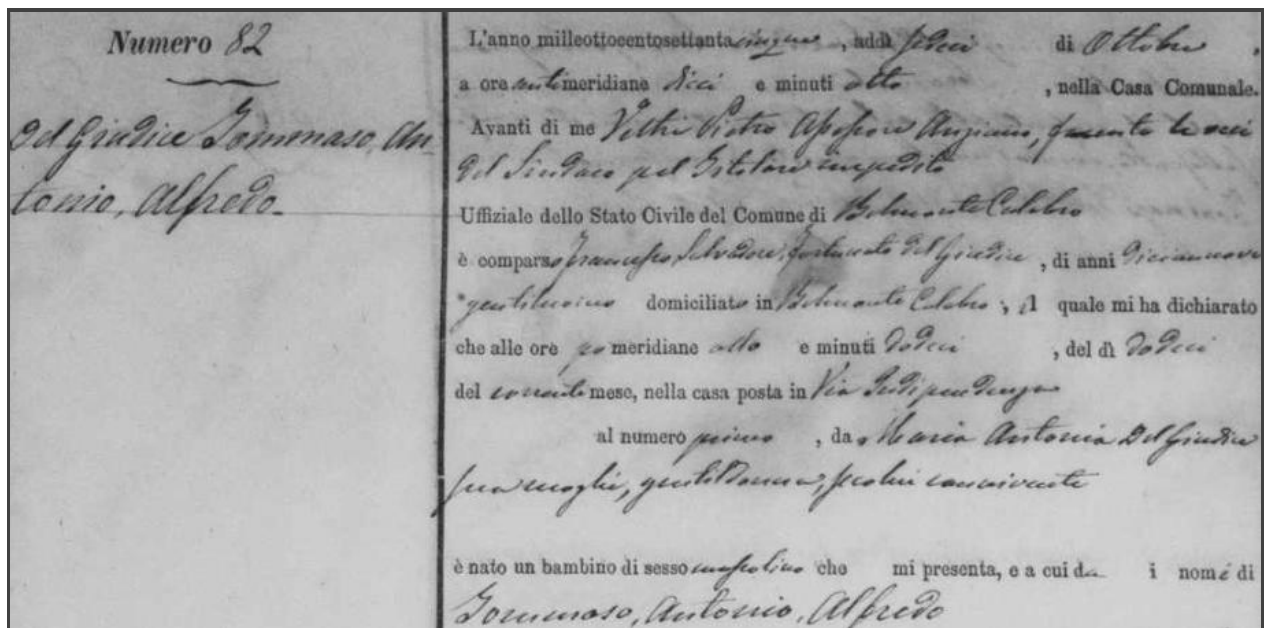 Numero 82
Del Giudice Tommaso, An-
tonio, Alfredo.
L'anno milleottocentosettantacinque, addì sedici di Ottobre,
a ore antimeridiane dieci e minuti otto, nella Casa Comunale.
Avanti di me Veltri Pietro Assessore Anziano, facente le veci
del Sindaco pel Titolare impedito
Uffiziale dello Stato Civile del Comune di Belmonte Calabro
è comparso Francesco, Salvadore, Fortunato del Giudice, di anni diciannove
gentiluomo domiciliato in Belmonte Calabro, il quale mi ha dichiarato
che alle ore pomeridiane otto e minuti dodici, del dì dodici
del corrente mese, nella casa posta in Via Indipendenza
al numero primo, da Maria Antonia Del Giudice
sua moglie, gentildonna, seco lui convivente
è nato un bambino di sesso mascolino che mi presenta, e a cui da i nomi di
Tommaso, Antonio, Alfredo